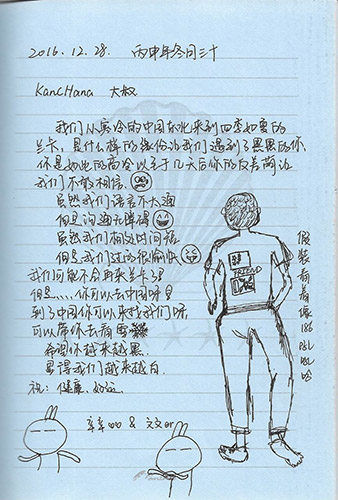 2016.12.28. 丙申年冬月三十
KancHana 大叔
我们从寒冷的中国东北来到四季如夏的
兰卡,是什么样的缘份让我们遇到了黑黑的你.
你是如此的高冷以至于几天后你的反差简直
我们不敢相信
虽然我们语言不太通
但是沟通无障碍
虽然我们相处时间短
但是我们过的很愉快
我们可能不会再来兰卡了
但是……你可以去中国呀!
到了中国你可以来找我们呢
可以带你去看雪
希望你越来越黑.
显得我们越来越白.
祝:健康 好运.
假装有着像186
哈哈
&